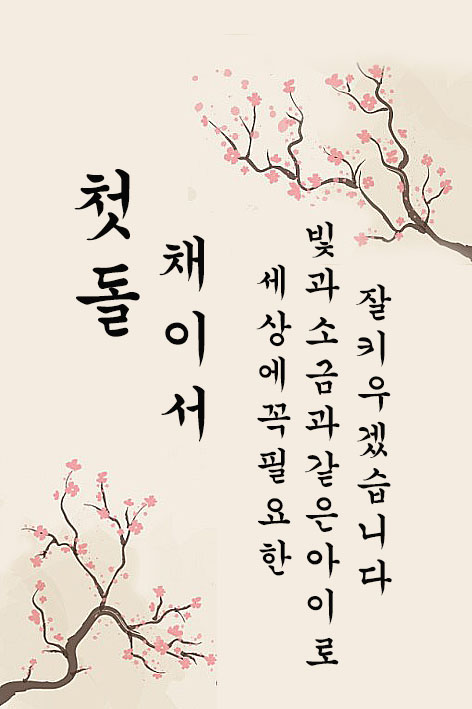 첫돌
채이서
세상에꼭필요한
빛과소금과같은아이로
잘키우겠습니다